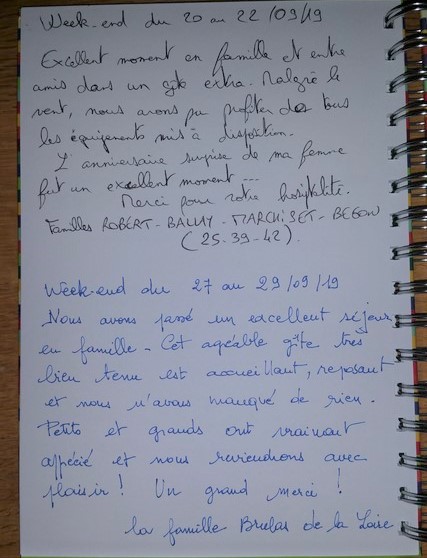 Week-end du 20 au 22/09/19
Excellent moment en famille et entre
amis dans un gîte extra. Malgré le
vent, nous avons pu profiter de tous
les équipements mis à disposition.
L'anniversaire surprise de ma femme
fut un excellent moment ---
Merci pour votre hospitalité.
Familles ROBERT - BALLAY - MARCHISET - BEGON
(25-39-42).
Week-end du 27 au 29/09/19
Nous avons passé un excellent séjour
en famille - Cet agréable gîte très
bien tenu est accueillant, reposant
et nous n'avons manqué de rien.
Petits et grands ont vraiment
apprécié et nous reviendrons avec
plaisir ! Un grand merci !
la famille de la Loire